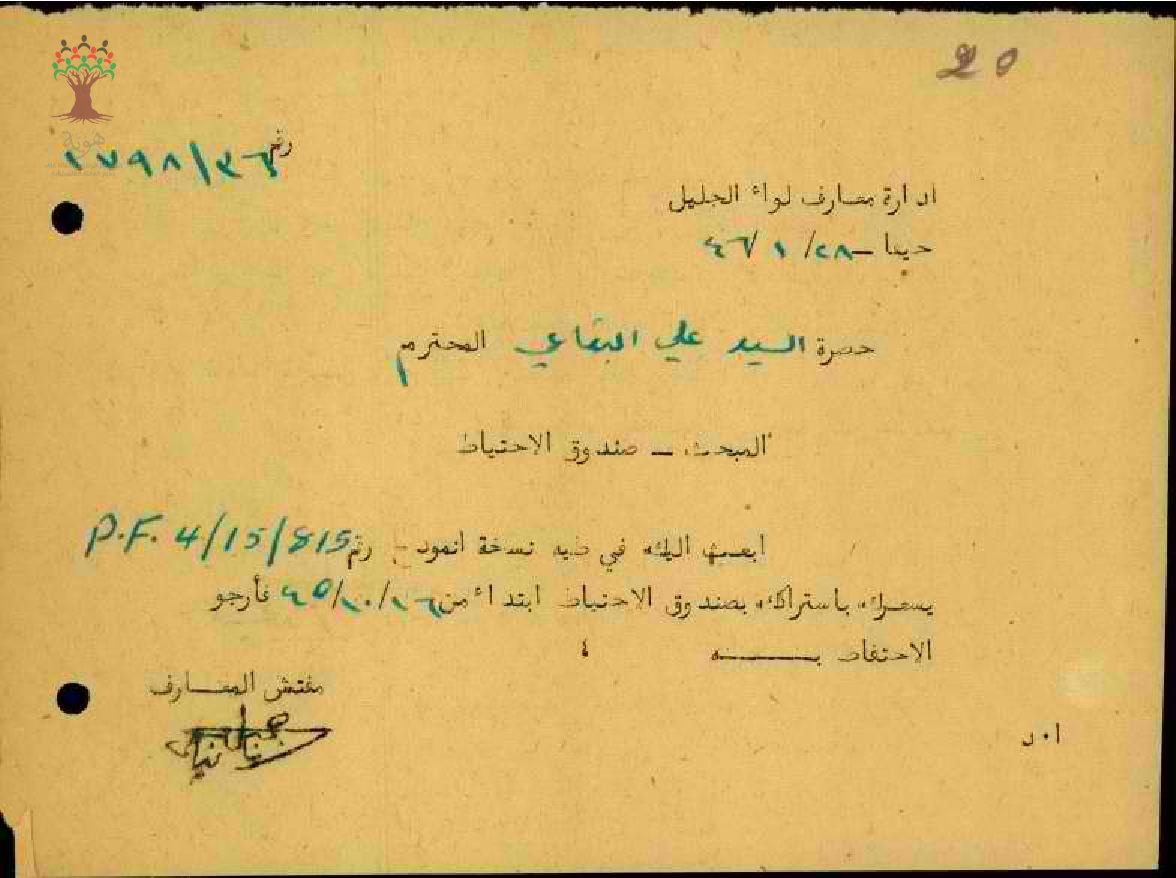 20
هوية
رقم ٣٦/١٧٩٨
ادارة معارف لواء الجليل
حيفا – ٢٨/ ١ /٤٦
حضرة السيد علي البقاعي المحترم
المبحث – صندوق الاحتياط
ابعث اليك في طيه نسخة انموذج رقم P.F. 4/15/815
يشعرك باشتراكك بصندوق الاحتياط ابتداء من ١٦/١٠/٤٥ فأرجو
الاحتفاظ بـــــــه ٤
مفتش المعـــارف
ا٠د